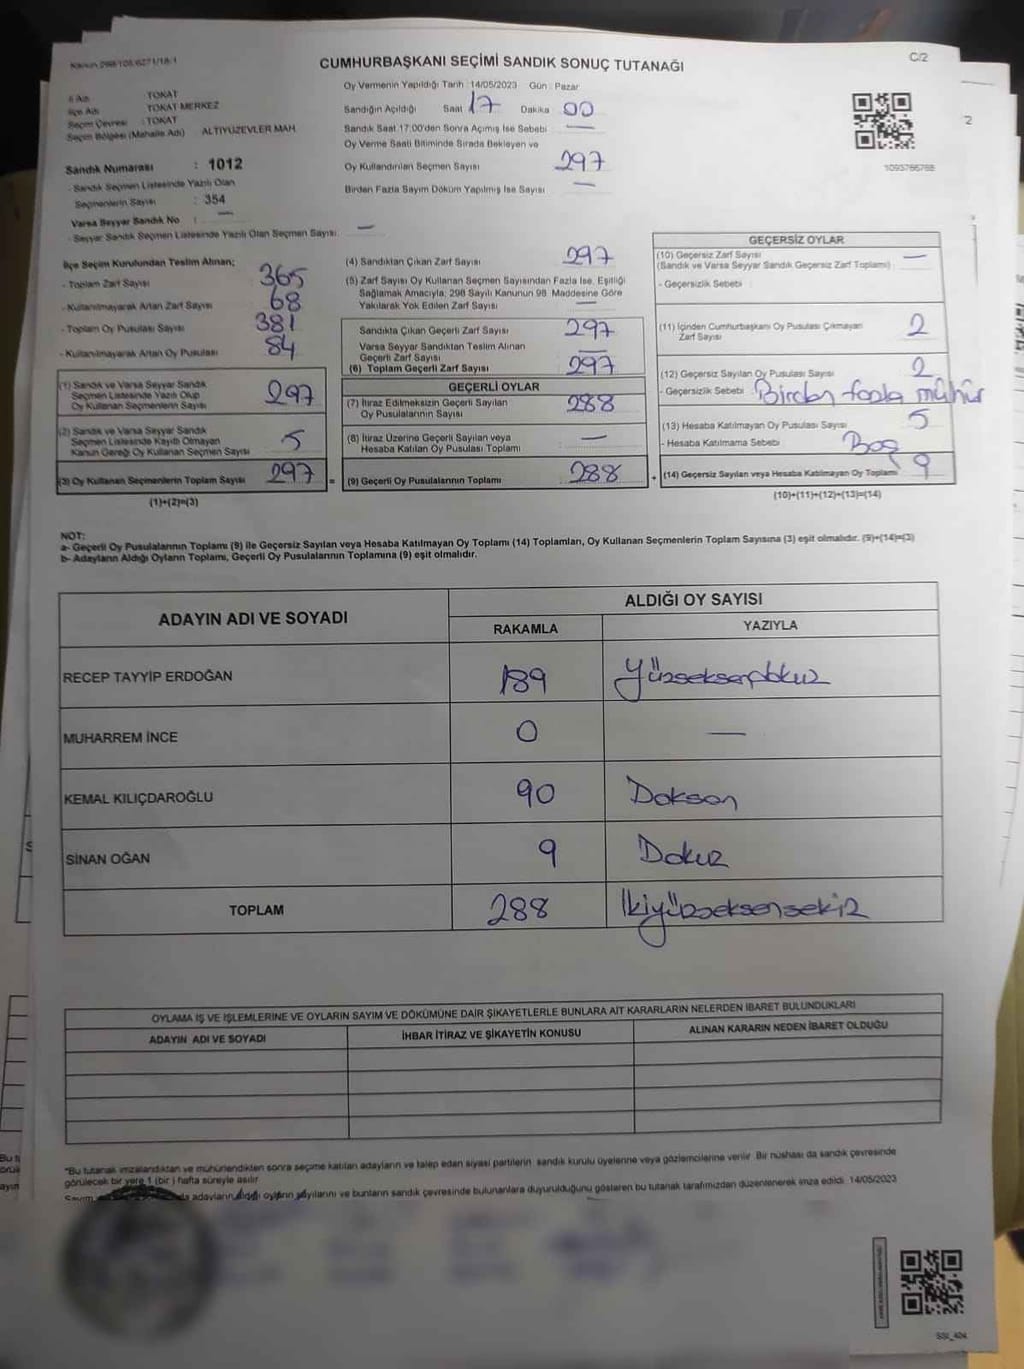 Kanun 298/105/6271/18/1
C/2
CUMHURBAŞKANI SEÇİMİ SANDIK SONUÇ TUTANAĞI
Oy Vermenin Yapıldığı Tarih : 14/05/2023 Gün : Pazar
İl Adı : TOKAT
İlçe Adı : TOKAT MERKEZ
Seçim Çevresi : TOKAT
Seçim Bölgesi (Mahalle Adı) ALTIYÜZEVLER MAH.
Sandığın Açıldığı Saat 17 Dakika 00
Sandık Saat 17:00'den Sonra Açımış İse Sebebi —
Oy Verme Saati Bitiminde Sırada Bekleyen ve
Oy Kullandırılan Seçmen Sayısı 297
Birden Fazla Sayım Döküm Yapılmış İse Sayısı —
2
1093766768
Sandık Numarası : 1012
- Sandık Seçmen Listesinde Yazılı Olan
Seçmenlerin Sayısı : 354
Varsa Seyyar Sandık No : —
- Seyyar Sandık Seçmen Listesinde Yazılı Olan Seçmen Sayısı : —
İlçe Seçim Kurulundan Teslim Alınan;
- Toplam Zarf Sayısı : 365
- Kullanılmayarak Artan Zarf Sayısı : 68
- Toplam Oy Pusulası Sayısı : 381
- Kullanılmayarak Artan Oy Pusulası : 84
(1) Sandık ve Varsa Seyyar Sandık
Seçmen Listesinde Yazılı Olup
Oy Kullanan Seçmenlerin Sayısı 297
(2) Sandık ve Varsa Seyyar Sandık
Seçmen Listesinde Kayıtlı Olmayan
Kanun Gereği Oy Kullanan Seçmen Sayısı 5
(3) Oy Kullanan Seçmenlerin Toplam Sayısı 297
(1)+(2)=(3)
(4) Sandıktan Çıkan Zarf Sayısı 297
(5) Zarf Sayısı Oy Kullanan Seçmen Sayısından Fazla İse, Eşitliği
Sağlamak Amacıyla; 298 Sayılı Kanunun 98. Maddesine Göre
Yakılarak Yok Edilen Zarf Sayısı —
Sandıkta Çıkan Geçerli Zarf Sayısı 297
Varsa Seyyar Sandıktan Teslim Alınan
Geçerli Zarf Sayısı —
(6) Toplam Geçerli Zarf Sayısı 297
GEÇERLİ OYLAR
(7) İtiraz Edilmeksizin Geçerli Sayılan
Oy Pusulalarının Sayısı 288
(8) İtiraz Üzerine Geçerli Sayılan veya
Hesaba Katılan Oy Pusulası Toplamı —
= (9) Geçerli Oy Pusulalarının Toplamı 288
GEÇERSİZ OYLAR
(10) Geçersiz Zarf Sayısı —
(Sandık ve Varsa Seyyar Sandık Geçersiz Zarf Toplamı)
- Geçersizlik Sebebi :
(11) İçinden Cumhurbaşkanı Oy Pusulası Çıkmayan
Zarf Sayısı 2
(12) Geçersiz Sayılan Oy Pusulası Sayısı 2
- Geçersizlik Sebebi : Birden fazla mühür
(13) Hesaba Katılmayan Oy Pusulası Sayısı 5
- Hesaba Katılmama Sebebi : Boş
+ (14) Geçersiz Sayılan veya Hesaba Katılmayan Oy Toplamı 9
(10)+(11)+(12)+(13)=(14)
NOT:
a- Geçerli Oy Pusulalarının Toplamı (9) ile Geçersiz Sayılan veya Hesaba Katılmayan Oy Toplamı (14) Toplamları, Oy Kullanan Seçmenlerin Toplam Sayısına (3) eşit olmalıdır. (9)+(14)=(3)
b- Adayların Aldığı Oyların Toplamı, Geçerli Oy Pusulalarının Toplamına (9) eşit olmalıdır.
ADAYIN ADI VE SOYADI
ALDIĞI OY SAYISI
RAKAMLA YAZIYLA
RECEP TAYYİP ERDOĞAN 189 Yüzseksendokuz
MUHARREM İNCE 0 —
KEMAL KILIÇDAROĞLU 90 Doksan
SİNAN OĞAN 9 Dokuz
TOPLAM 288 İkiyüzseksensekiz
OYLAMA İŞ VE İŞLEMLERİNE VE OYLARIN SAYIM VE DÖKÜMÜNE DAİR ŞİKAYETLERLE BUNLARA AİT KARARLARIN NELERDEN İBARET BULUNDUKLARI
ADAYIN ADI VE SOYADI İHBAR İTİRAZ VE ŞİKAYETİN KONUSU ALINAN KARARIN NEDEN İBARET OLDUĞU
*Bu tutanak imzalandıktan ve mühürlendikten sonra seçime katılan adayların ve talep edan siyasi partilerin sandık kurulu üyelerine veya gözlemcilerine verilir. Bir nüshası da sandık çevresinde
görülecek bir yere 1 (bir ) hafta süreyle asılır.
Sayım adayların aldığı oyların sayılarını ve bunların sandık çevresinde bulunanlara duyurulduğunu gösteren bu tutanak tarafımızdan düzenlenerek imza edildi. 14/05/2023
SSI_404